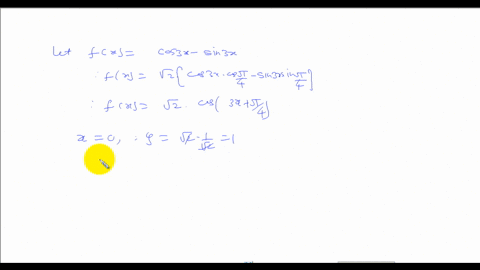 Let f(x) = cos3x - sin3x
∴ f(x) = √2 [cos3x · cos π/4 - sin3x sin π/4]
∴ f(x) = √2 · cos(3x + π/4)
x = 0, ∴ y = √2 · 1/√2 = 1